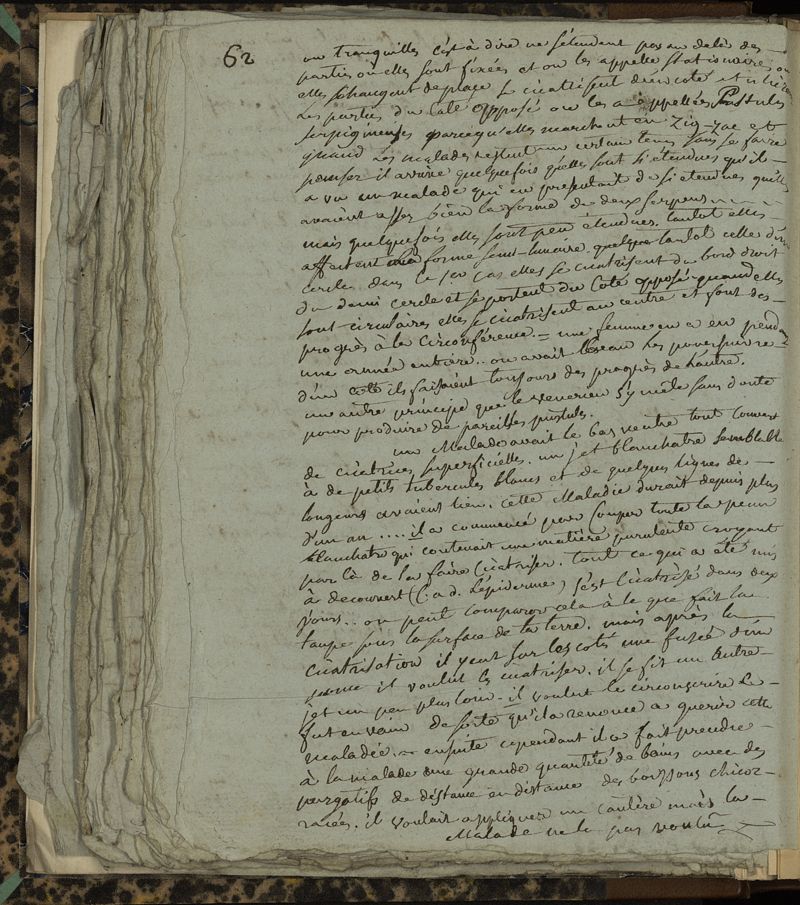 62
ou tranquilles c'est à dire ne s'étendent pas au delà des
parties où elles sont fixées et on les appelle stationaires, ou
elles changent de place se cicatrisent d'un coté et
les parties du coté opposé on les a appellées Pustules
serpigineuses parcequ'elles marchent en zig-zac et
quand les malades restent un certain tems sans se faire
penser il arrive quelquefois quelles sont si étendues qu'il
a vu un malade qui en présentait de si étendues qu'elles
avaient assez bien la forme de deux serpens
mais quelquefois elles sont peu étendues. tantot elles
affectent la forme semi-lunaire. tantot celle d'un
cercle. dans le 1er cas elles se cicatrisent du bord droit
du demi cercle et se portent du coté opposé quand elles
sont circulaires elles se cicatrisent au centre et font des
progrès à la circonférence. = une femme en a eu pendant
une année entière.. on avait beau les poursuivre
d'un coté ils faisaient toujours des progrès de l'autre.
un autre principe que le venerien s'y mêle sans doute
pour produire de pareilles pustules.
un Malade avait le bas ventre tout couvert
de cicatrices superficielles. un jet blanchatre semblable
à de petits tubercules blancs et de quelques lignes de
longeur avaient lieu. cette Maladie durait depuis plus
d'un an .... il a commencé par couper toute la peau
blanchatre qui contenait une matière purulente croyant
par là de la faire cicatriser. tout ce qui a été mis
à decouvert (c.a.d. l'épiderme) s'est cicatrisé dans deux
jours.. on peut comparer cela à ce que fait la
taupe sous la surface de la terre. mais après la
cicatrisation il y eut sur les cotés une fusée d'un
pouce il voulut les cicatriser. il se fit un autre
jet un peu plus loin. il voulut le circonscrire ce
fut en vain de sorte qu'il a renoncé a guerir cette
maladie. ensuite cependant il a fait prendre
à la malade une grande quantité de bains avec des
purgatifs de distance en distance des boissons chicor-
racées. il voulait appliquer un cautère mais la
Malade ne l'a pas voulu